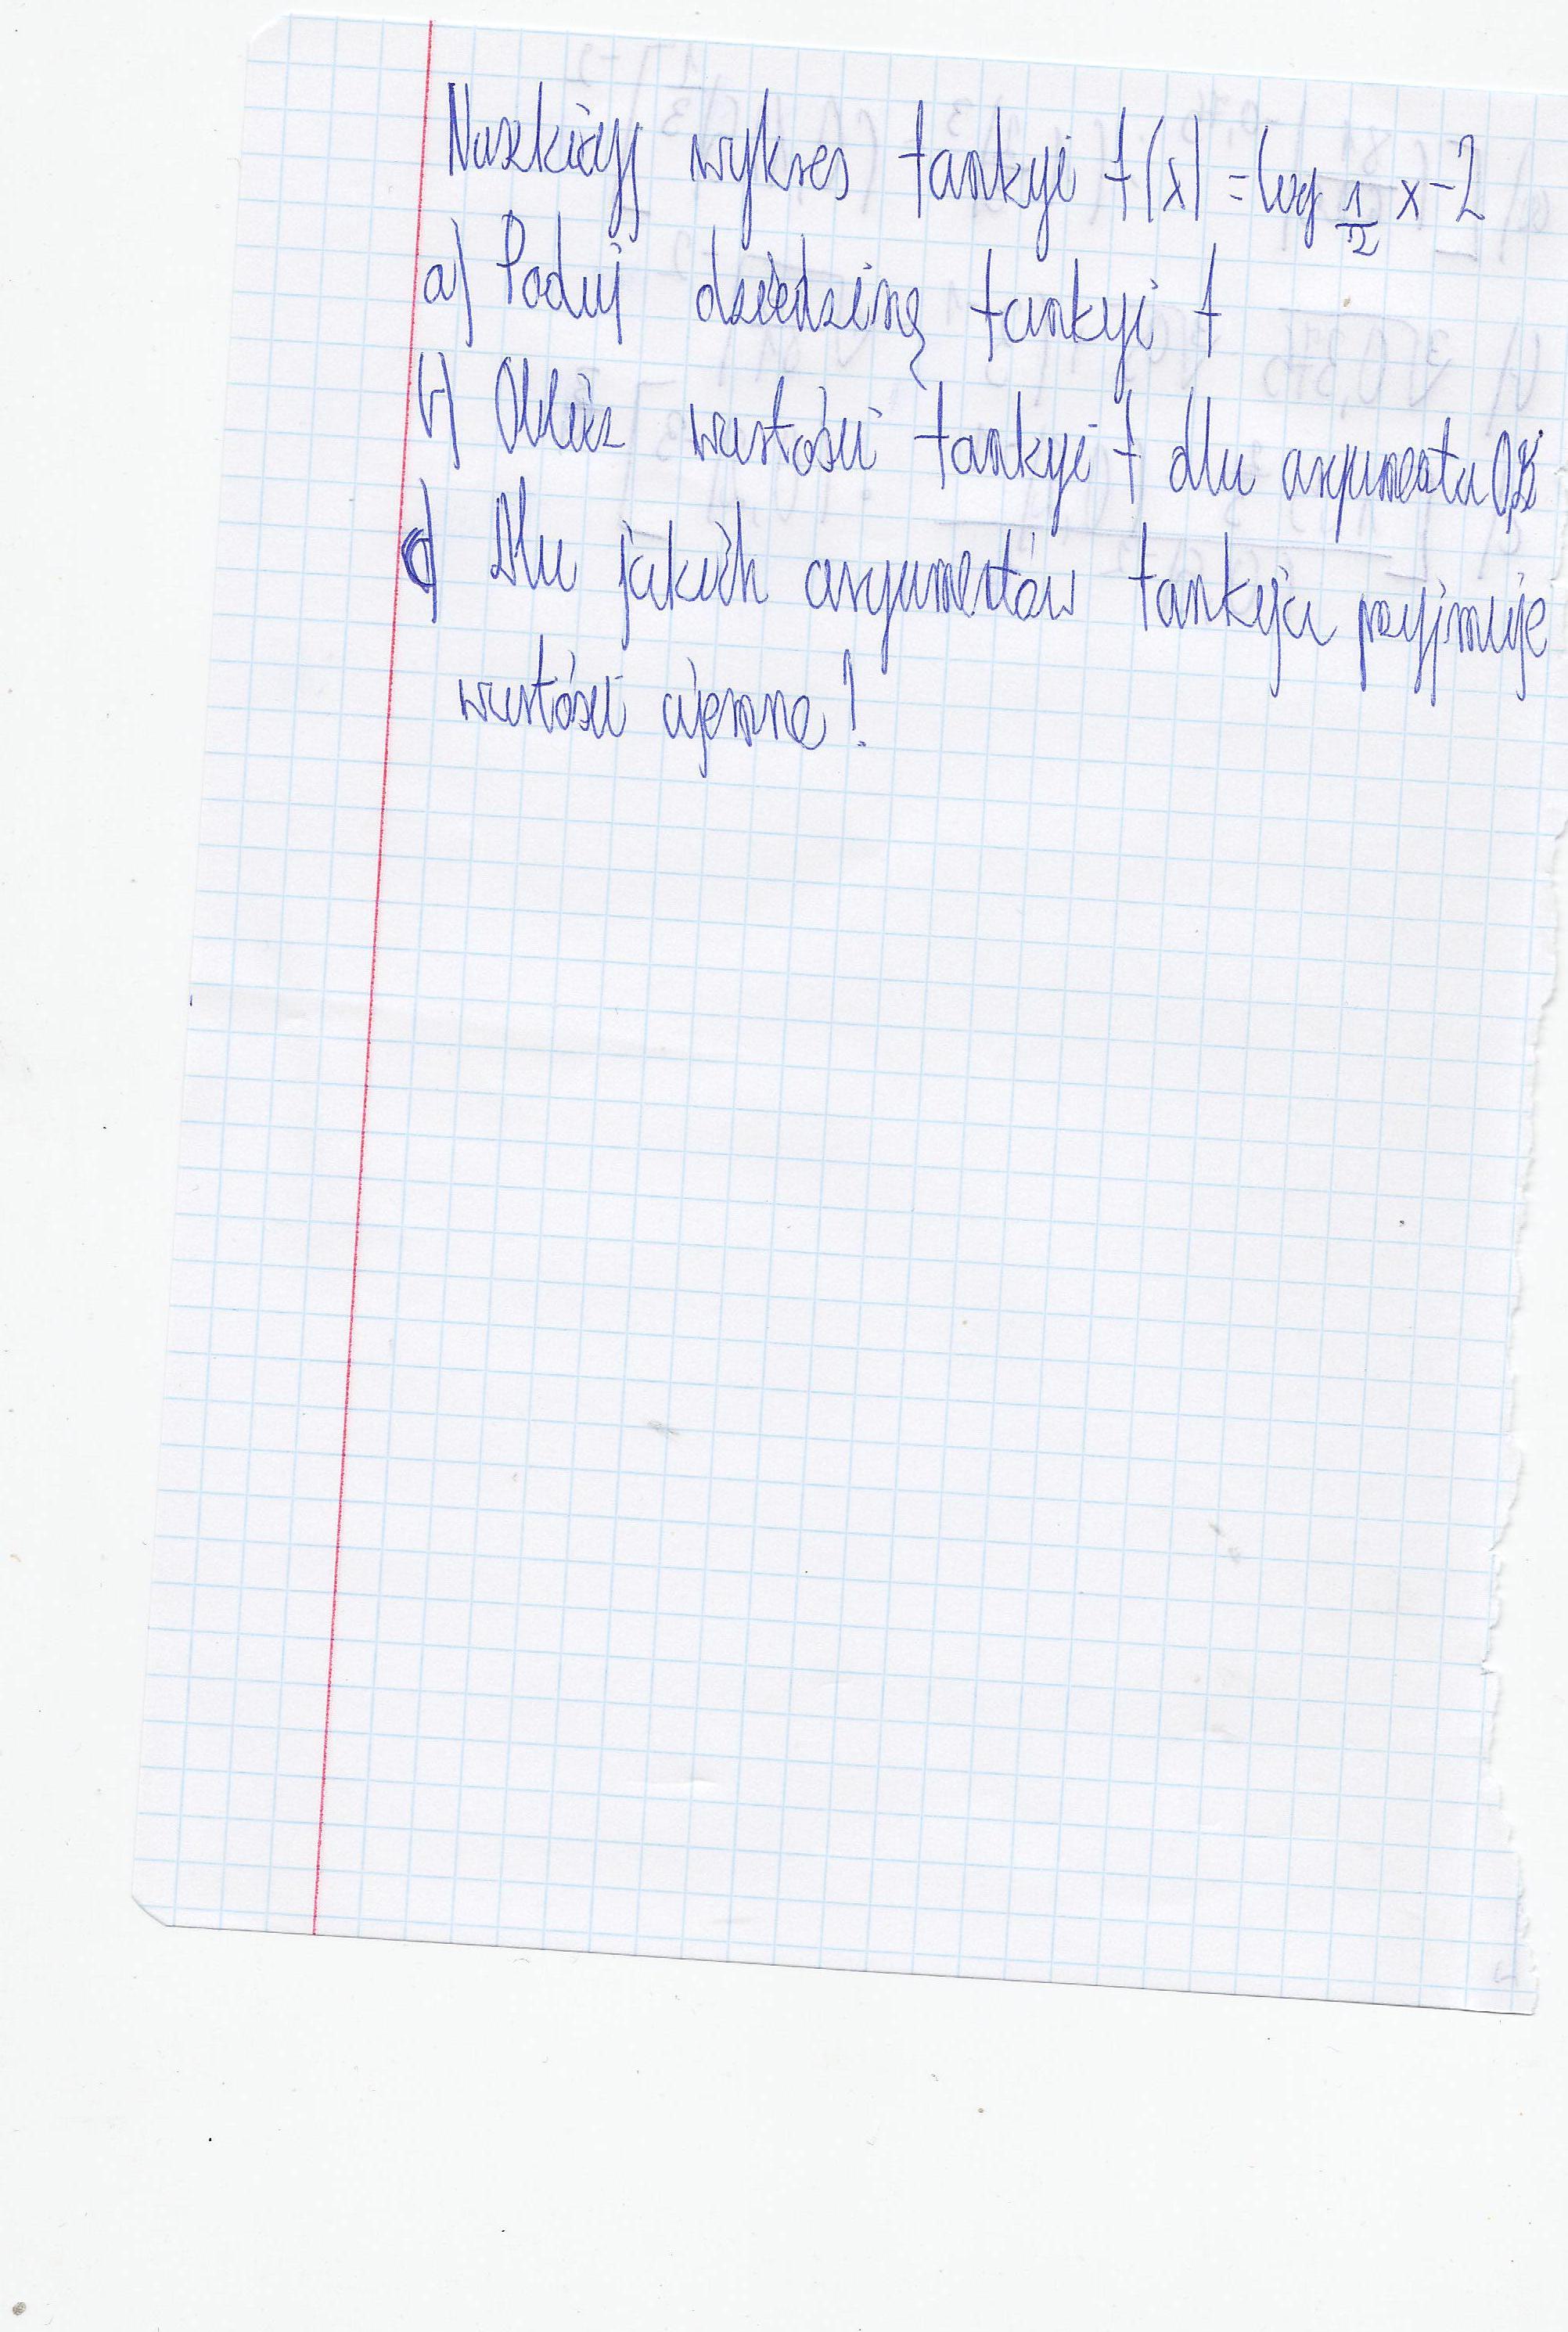 Naszkicuj wykres funkcji f(x) = log 1/2 x - 2
a) Podaj dziedzinę funkcji f
b) Oblicz wartości funkcji f dla argumentu
c) Dla jakich argumentów funkcja przyjmuje
wartości ujemne?